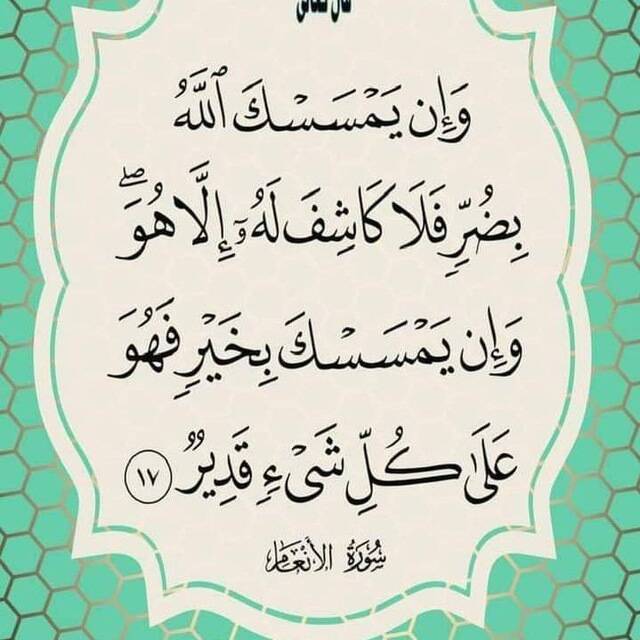 قال تعالى
وَإِن يَمْسَسْكَ ٱللَّهُ
بِضُرٍّ فَلَا كَاشِفَ لَهُۥٓ إِلَّا هُوَ ۖ
وَإِن يَمْسَسْكَ بِخَيْرٍ فَهُوَ
عَلَىٰ كُلِّ شَىْءٍ قَدِيرٌ ١٧
سُورَةُ الأَنْعَام